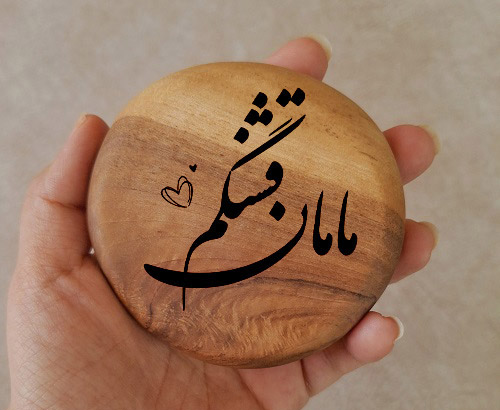 مامان قشنگم